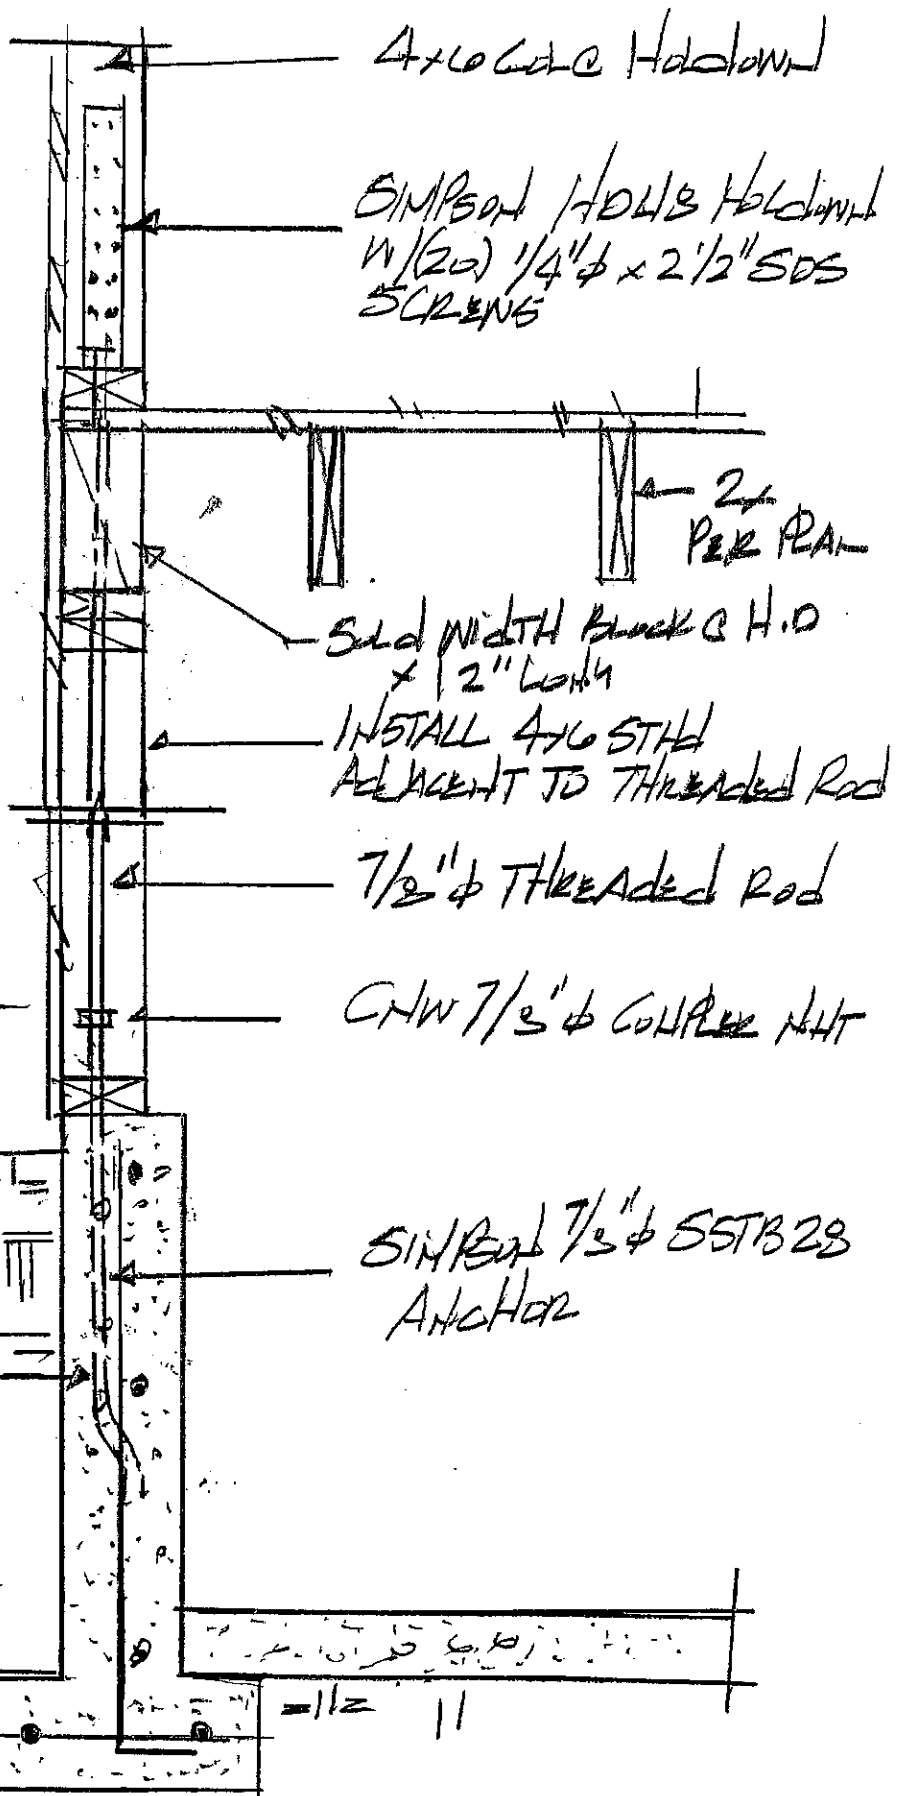 4x6 Col @ Holdown
SIMPSON HDU8 Holdown
W/(20) 1/4"ϕ x 2 1/2" SDS
SCREWS
2x
PER PLAN
Solid WIDTH Block @ H.D
x 12" Long
INSTALL 4x6 STUd
AdJACENT TO THREADEd Rod
7/8"ϕ THREADEd Rod
CNW 7/8"ϕ COUPLER NUT
SIMPSON 7/8"ϕ SSTB28
ANCHOR